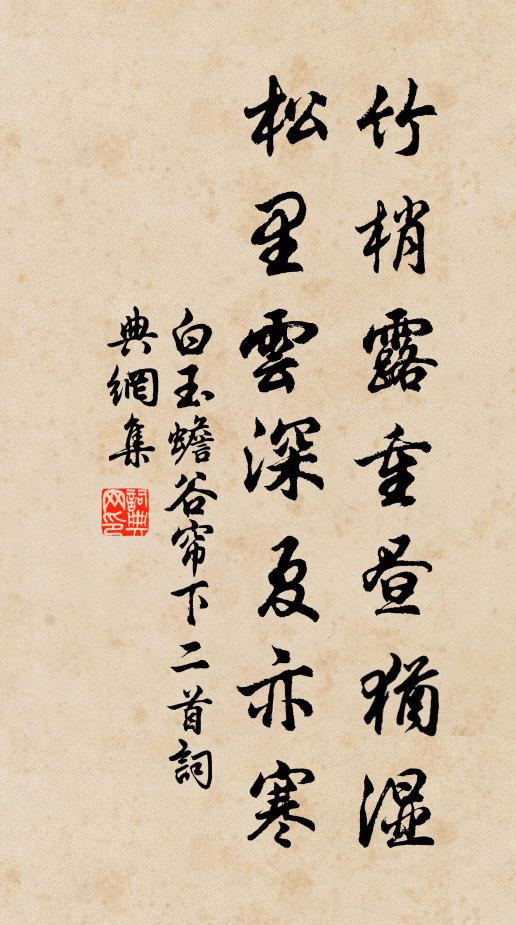 竹梢露重昼猶湿
松里雲深夏亦寒
白玉蟾谷帘下二首詞
典網集
詞典網印